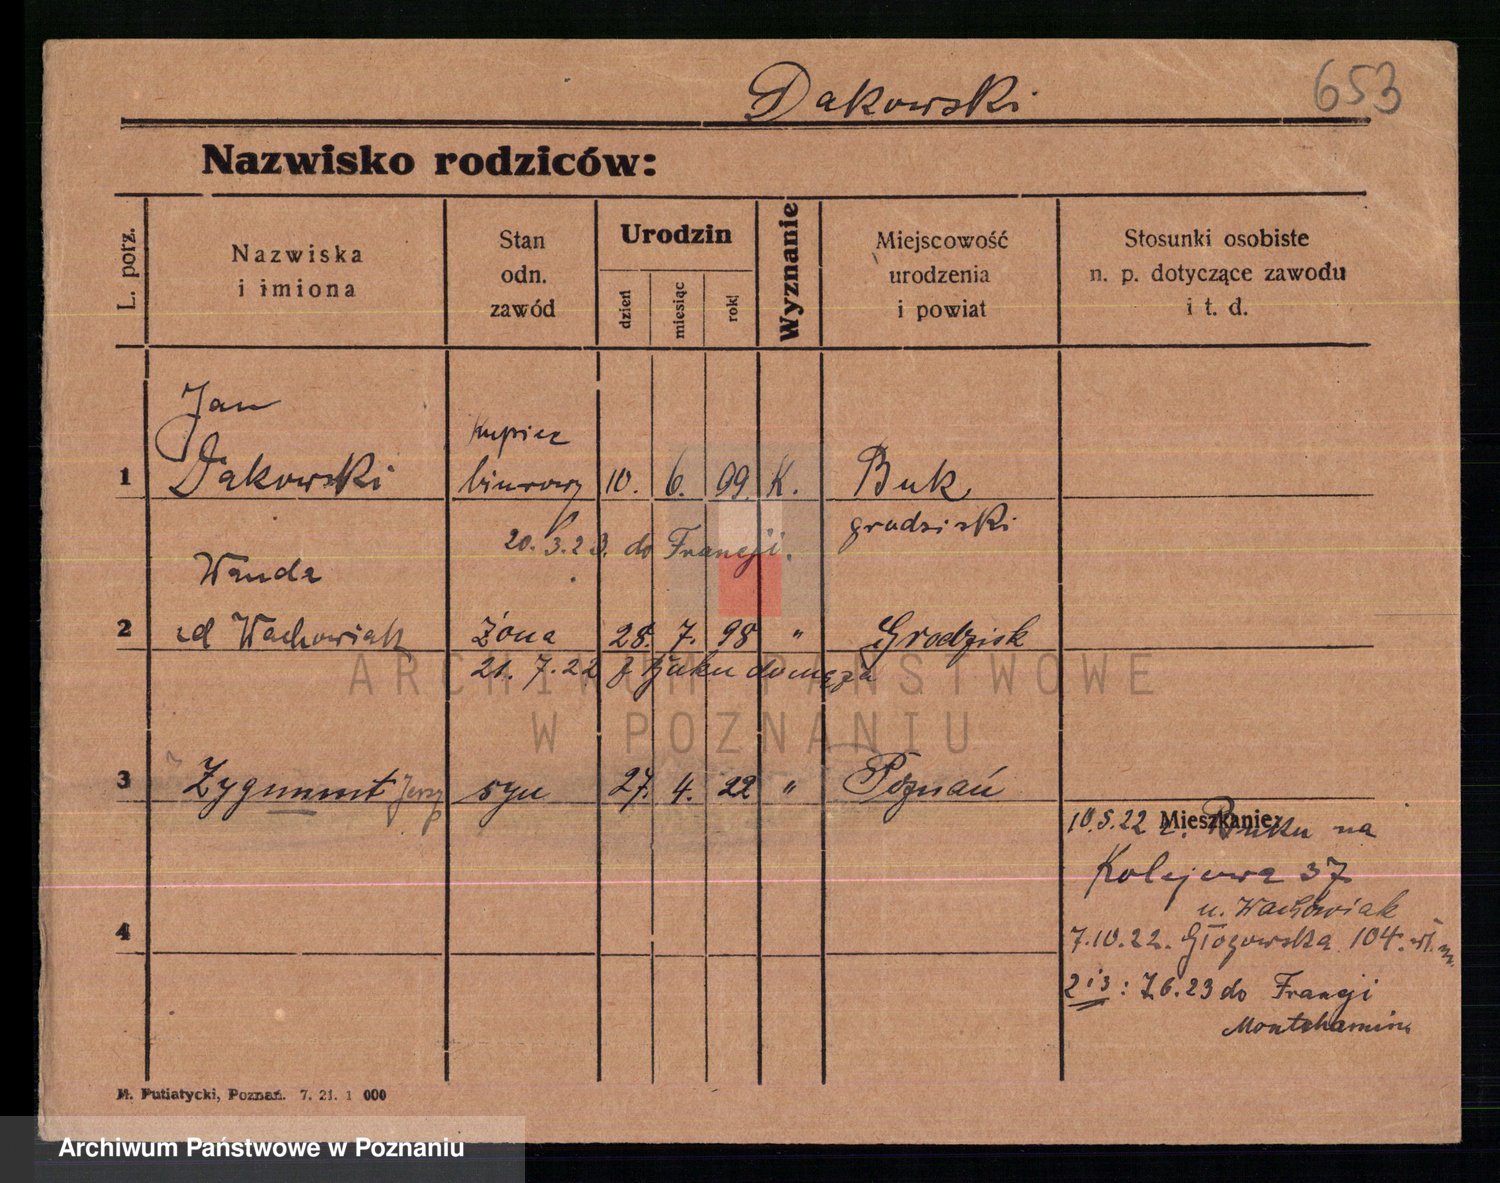 653
Dakowski
Nazwisko rodziców:
L. porz.
Nazwiska
i imiona
Stan
odn.
zawód
Urodzin
dzień
miesiąc
rok
Wyznanie
Miejscowość
urodzenia
i powiat
Stosunki osobiste
n. p. dotyczące zawodu
i t. d.
Jan
Kupiec
1 Dakowski biurowy 10. 6. 99. K. Buk
grodziski
20. 3. 23. do Francji.
Wanda
2 Wachowiak Żona 28. 7. 98 " Grodzisk
21. 7. 22 z Buku do męża
3 Zygmunt Jerzy syn 27. 4. 22 " Poznań
Mieszkanie:
10.5.22 z. Buku na
Kolejowa 37
u. Wachowiak
4
7.10.22. Głogowska 104.
2 i 3 : 7.6.23 do Francji
ARCHIWUM PAŃSTWOWE
W POZNANIU
Putiatycki, Poznań. 7. 21. 1 000
Archiwum Państwowe w Poznaniu